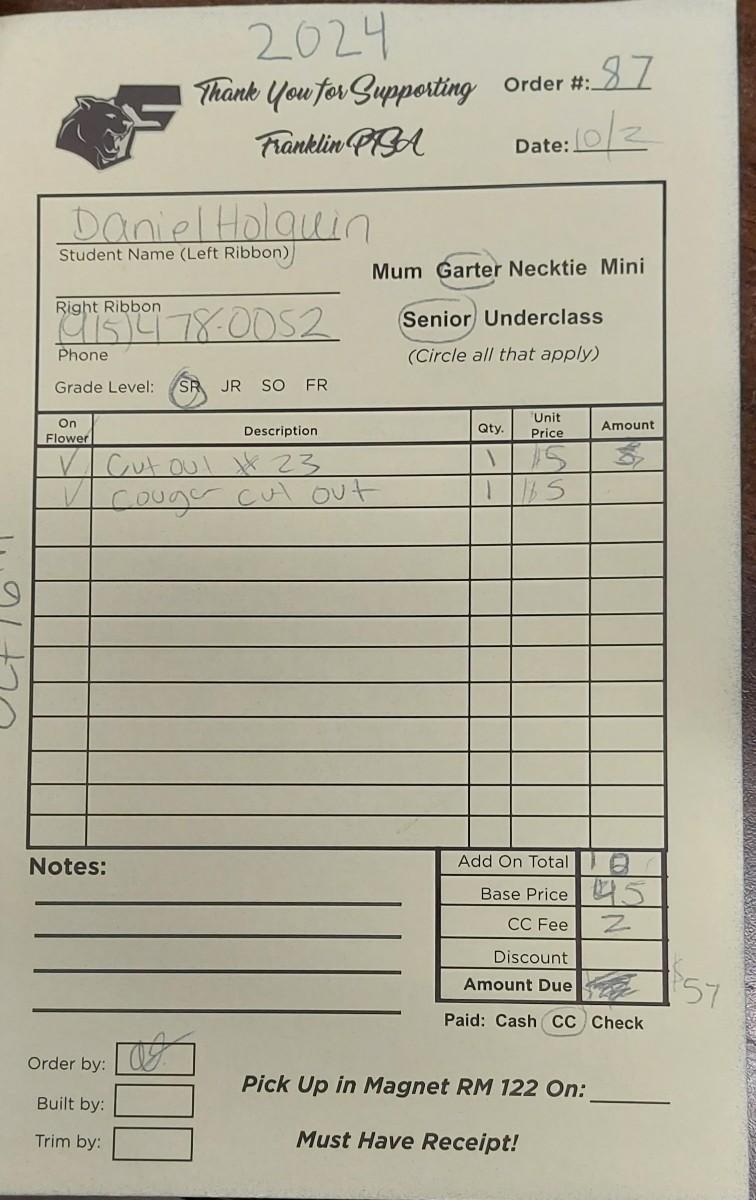 2024
Thank You for Supporting
Franklin PTSA
Order #: 87
Date: 10/2
Daniel Holguin
Student Name (Left Ribbon)
Right Ribbon
(915)478-0052
Phone
Mum Garter Necktie Mini
Senior Underclass
(Circle all that apply)
Grade Level: SR JR SO FR
On Flower Description Qty. Unit Price Amount
√ Cut out # 23 1 $5
√ Couger cut out 1 $5
Oct 16th
Notes:
Add On Total 10
Base Price 45
CC Fee 2
Discount
Amount Due $57
Paid: Cash CC Check
Order by:
Built by:
Trim by:
Pick Up in Magnet RM 122 On:
Must Have Receipt!